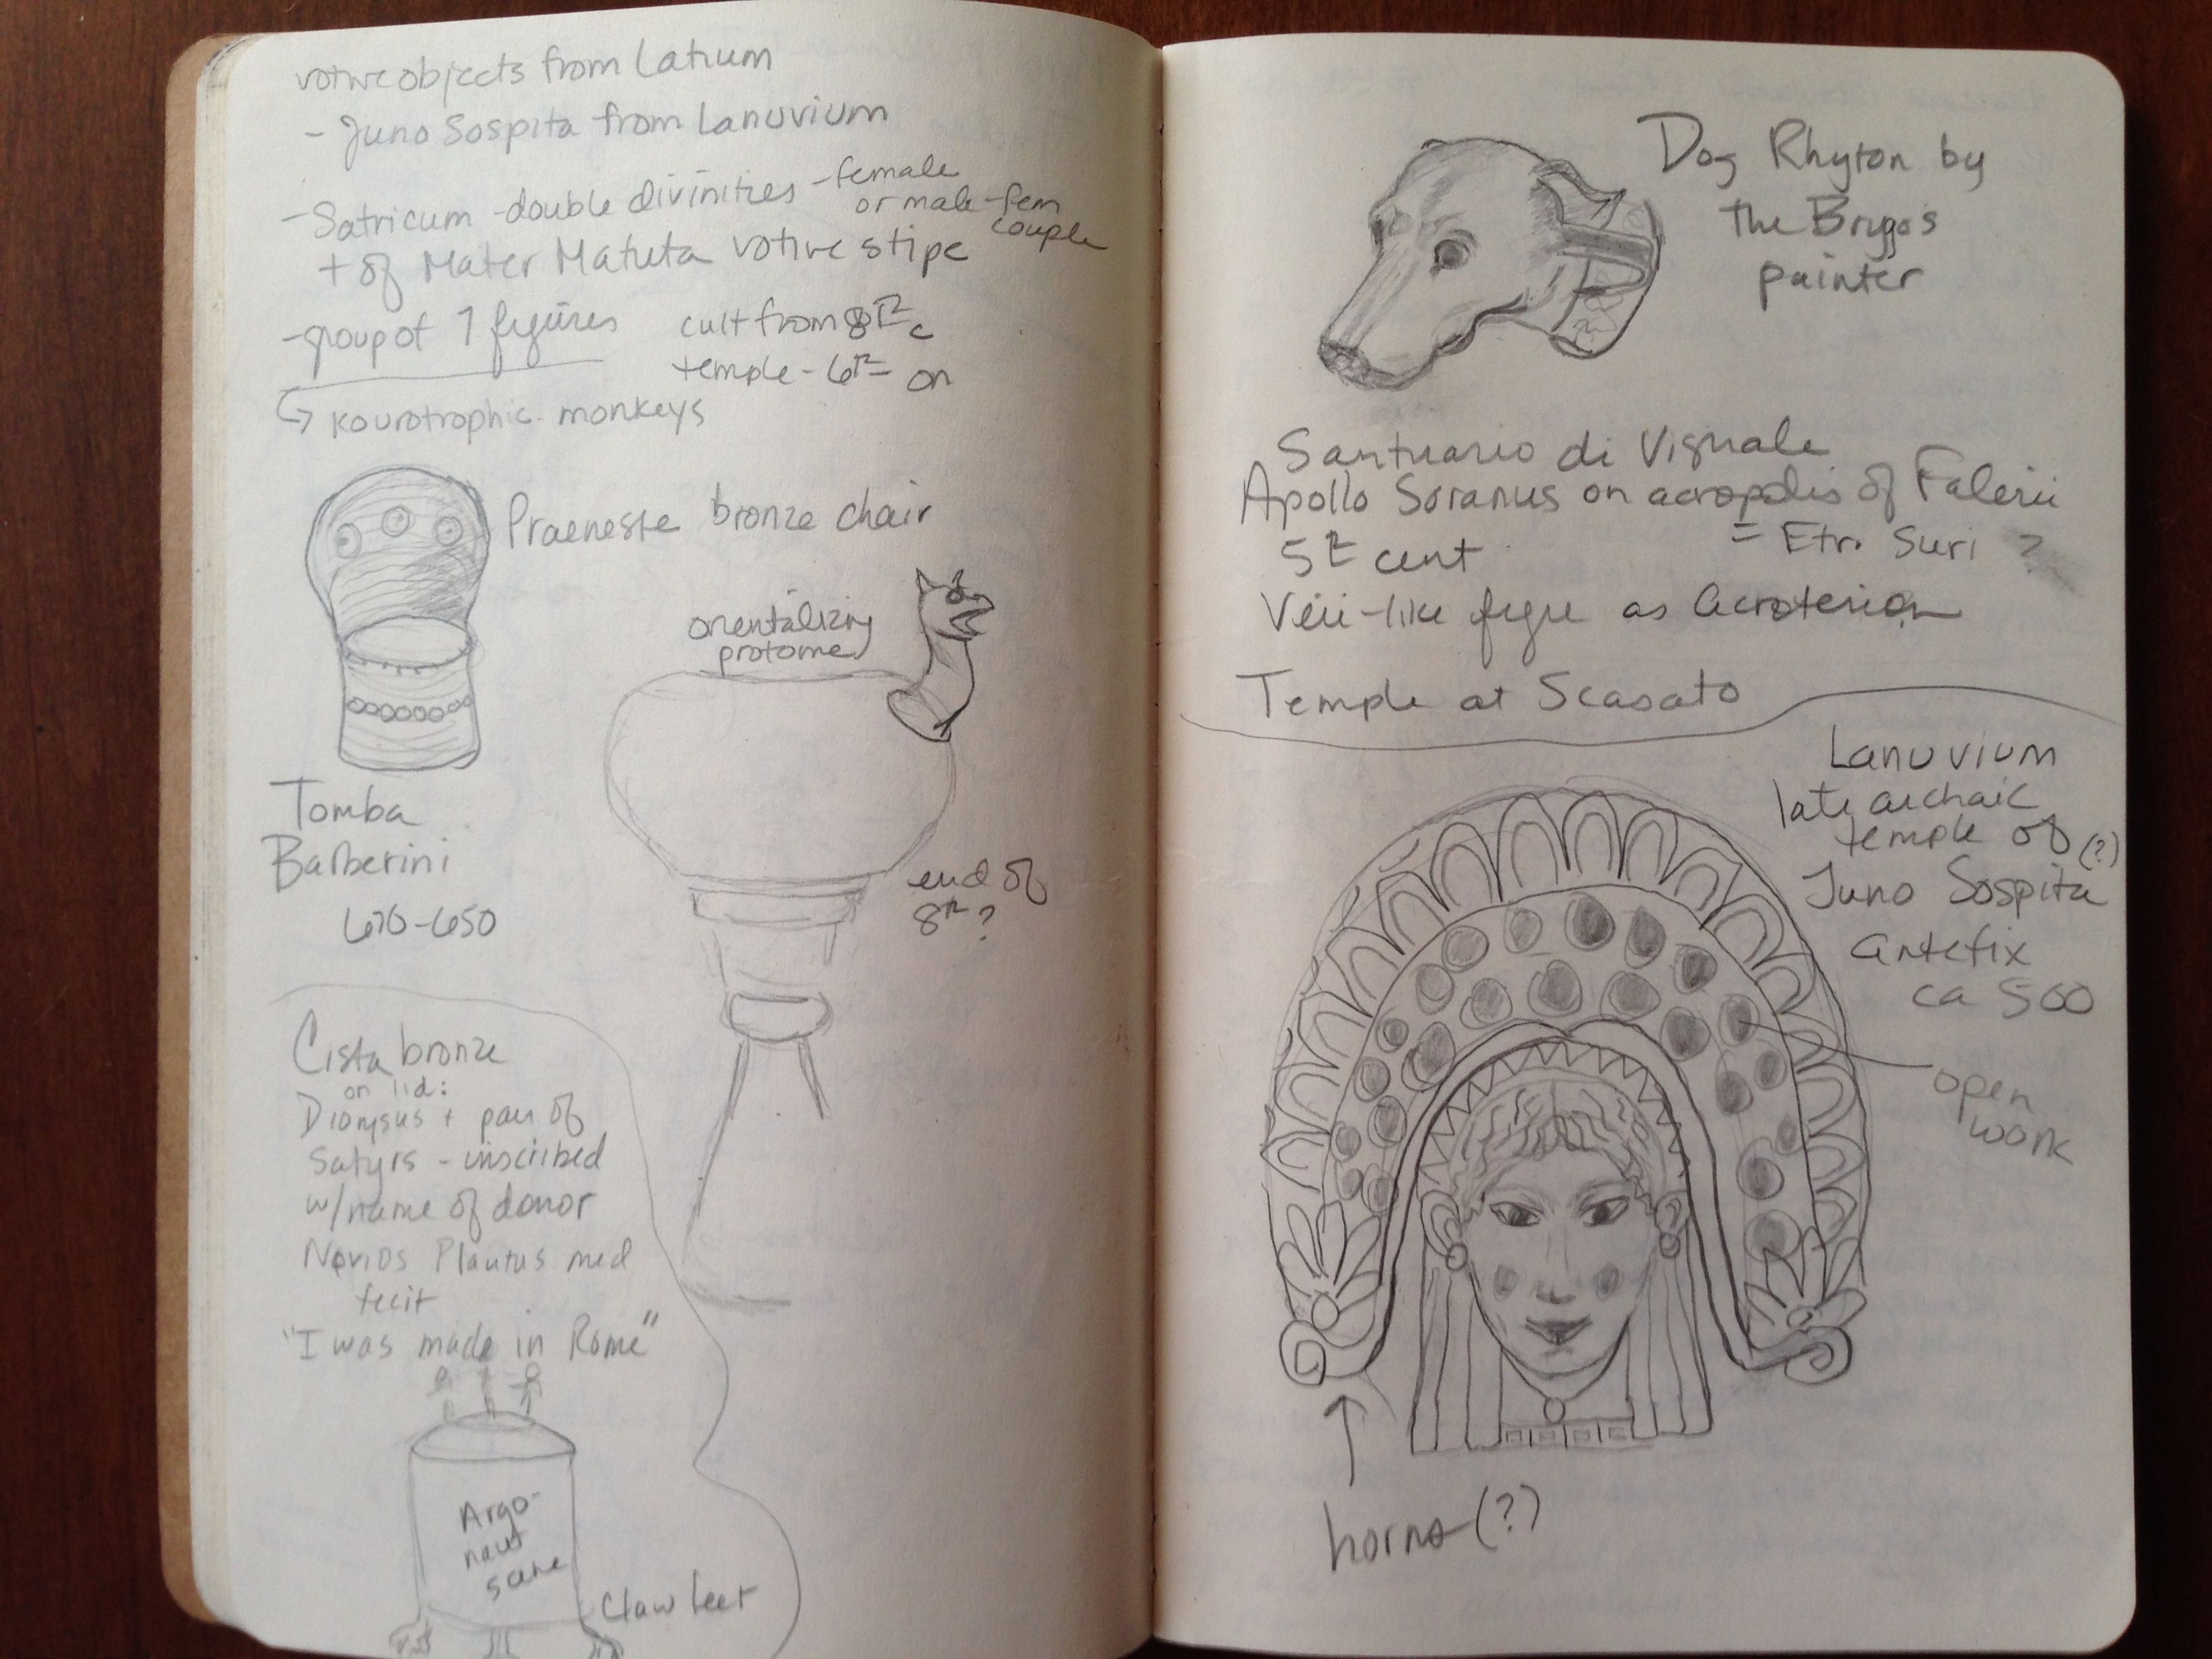 votive objects from Latium
- Juno Sospita from Lanuvium
- Satricum - double divinities - female
or male-fem
couple
+ of Mater Matuta votive stipe
- group of 7 figures
cult from 8th c
temple - 6th on
↳ kourotrophic monkeys
Praeneste bronze chair
orientalizing
protome
Tomba
Barberini
670-650
end of
8th ?
Cista bronze
on lid:
Dionysus + pair of
Satyrs - inscribed
w/name of donor
Novios Plautus med
fecit
"I was made in Rome"
Argo-
naut
scene
Claw feet
Dog Rhyton by
the Brygos
painter
Santuario di Vignale
Apollo Soranus on acropolis of Falerii
5th cent
= Etr. Suri ?
Veii-like figre as acroterion
Temple at Scasato
Lanuvium
late archaic
temple of (?)
Juno Sospita
antefix
ca 500
open
work
horns (?)